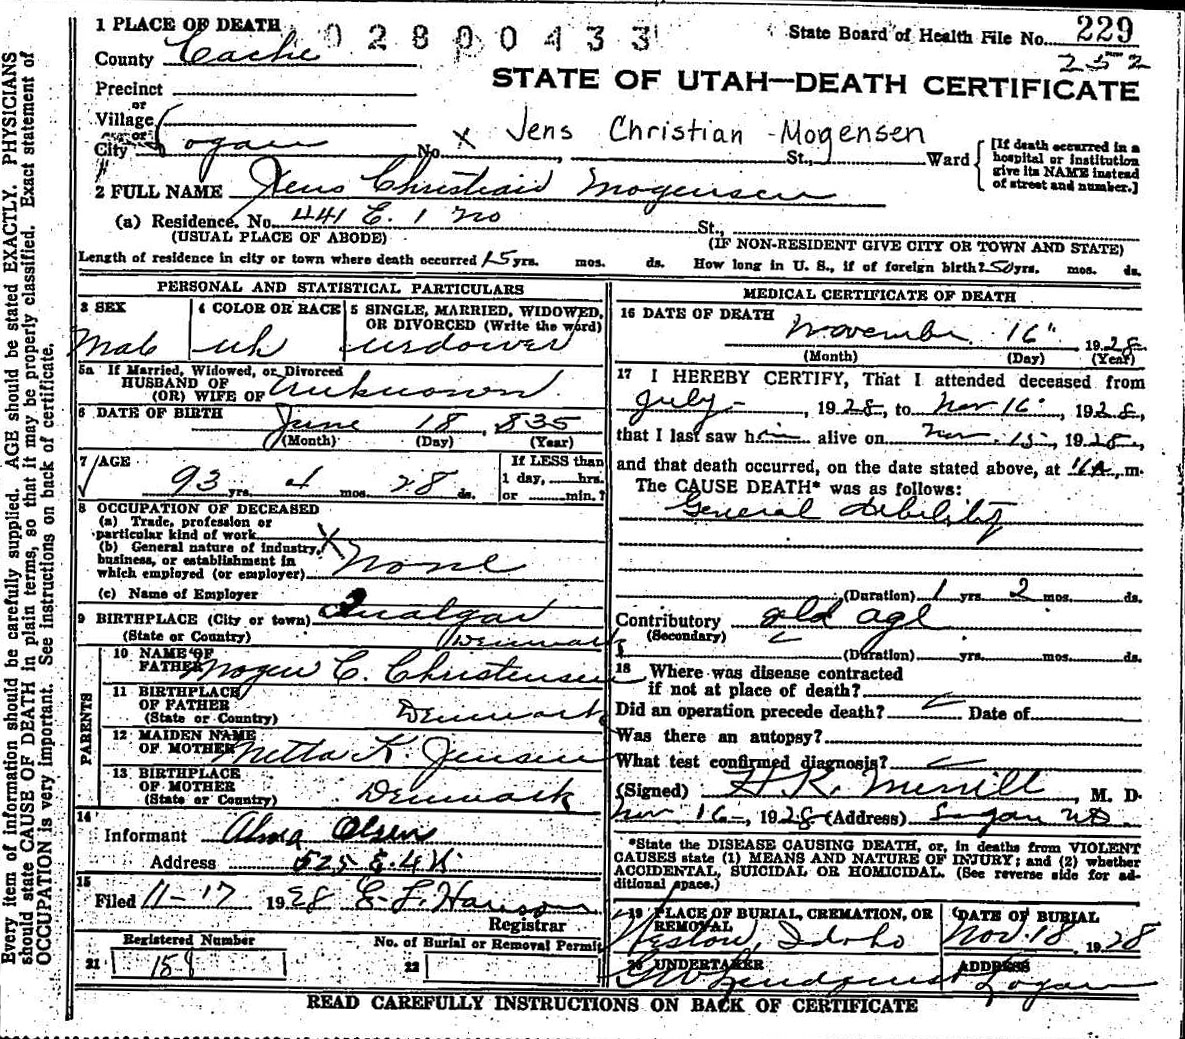 1 PLACE OF DEATH 02800433 State Board of Health File No. 229
County Cache 252
STATE OF UTAH—DEATH CERTIFICATE
Precinct
or
Village
or
City Logan No. X Jens Christian Mogensen St., Ward
[If death occurred in a hospital or institution give its NAME instead of street and number.]
2 FULL NAME Jens Christian Mogensen
(a) Residence. No. 441 E. 1 no St.,
(USUAL PLACE OF ABODE) (IF NON-RESIDENT GIVE CITY OR TOWN AND STATE)
Length of residence in city or town where death occurred 15 yrs. mos. ds. How long in U. S., if of foreign birth? 50 yrs. mos. ds.
PERSONAL AND STATISTICAL PARTICULARS
3 SEX 4 COLOR OR RACE 5 SINGLE, MARRIED, WIDOWED,
OR DIVORCED (Write the word)
Male wh widower
5a If Married, Widowed, or Divorced
HUSBAND OF
(OR) WIFE OF unknown
6 DATE OF BIRTH June 18, 835
(Month) (Day) (Year)
7 AGE If LESS than
93 yrs. 4 mos. 28 ds. 1 day, hrs.
or min.?
8 OCCUPATION OF DECEASED
(a) Trade, profession or
particular kind of work X
(b) General nature of industry,
business, or establishment in
which employed (or employer) None
(c) Name of Employer
9 BIRTHPLACE (City or town)
(State or Country) Denmark
PARENTS
10 NAME OF
FATHER Mogen C. Christensen
11 BIRTHPLACE
OF FATHER
(State or Country) Denmark
12 MAIDEN NAME
OF MOTHER Metta K Jensen
13 BIRTHPLACE
OF MOTHER
(State or Country) Denmark
14
Informant Alma Olsen
Address 525 E. 4 N.
15
Filed 11-17 1928 E. L. Hanson
Registrar
Registered Number No. of Burial or Removal Permit
21 158 22
MEDICAL CERTIFICATE OF DEATH
16 DATE OF DEATH
November 16" 1928
(Month) (Day) (Year)
17 I HEREBY CERTIFY, That I attended deceased from
July - , 1928, to Nov 16, 1928,
that I last saw him alive on Nov. 15, 1928,
and that death occurred, on the date stated above, at 11 A m.
The CAUSE DEATH* was as follows:
General debility
(Duration) 1 yrs. 2 mos. ds.
Contributory old age
(Secondary)
(Duration) yrs. mos. ds.
18 Where was disease contracted
if not at place of death?
Did an operation precede death? Date of
Was there an autopsy?
What test confirmed diagnosis?
(Signed) H. K. Merrill, M. D.
Nov. 16, 1928 (Address) Logan Ut.
*State the DISEASE CAUSING DEATH, or, in deaths from VIOLENT
CAUSES state (1) MEANS AND NATURE OF INJURY; and (2) whether
ACCIDENTAL, SUICIDAL OR HOMICIDAL. (See reverse side for ad-
ditional space.)
19 PLACE OF BURIAL, CREMATION, OR DATE OF BURIAL
REMOVAL
Weston, Idaho Nov. 18 1928
20 UNDERTAKER ADDRESS
Lindquist Logan
READ CAREFULLY INSTRUCTIONS ON BACK OF CERTIFICATE
Every item of information should be carefully supplied. AGE should be stated EXACTLY. PHYSICIANS
should state CAUSE OF DEATH in plain terms, so that it may be properly classified. Exact statement of
OCCUPATION is very important. See instructions on back of certificate.